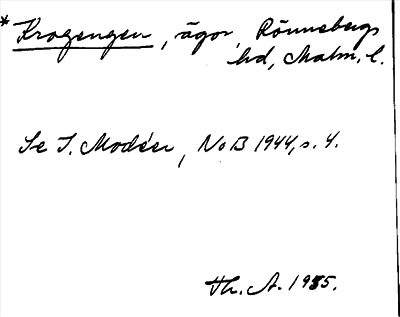 * Krogengen, ägor, Rönnebergs
hd, Malm. l.
Se I. Modéer, NoB 1944, s. 4.
Th. A. 1985.